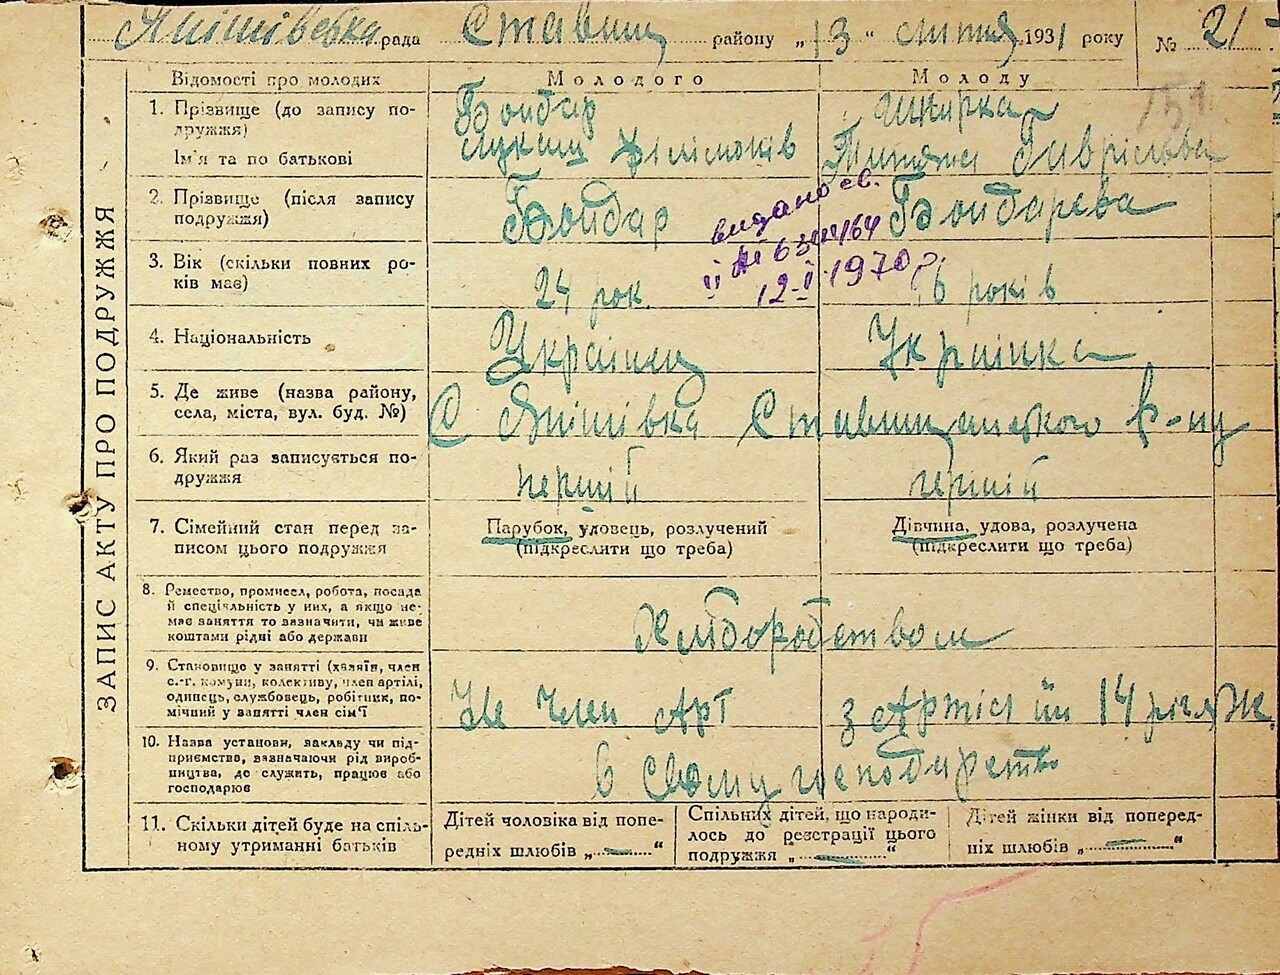 Япішівська рада Ставищ району „13“ лютня 1931 року № 21
ЗАПИС АКТУ ПРО ПОДРУЖЖЯ
Відомості про молодих
Молодого
Молоду
1. Прізвище (до запису по-
дружжя)
Ім'я та по батькові
Бондар
Шкирка
Лукаш Філімонів
Титяна Гаврільєва
2. Прізвище (після запису
подружжя)
Бондар
Бондарева
видано св.
12-V-1970 р.
3. Вік (скільки повних ро-
ків має)
24 рок.
років
4. Національність
Українец
Українка
5. Де живе (назва району,
села, міста, вул. буд. №)
С Япішівка Ставищанського р-ну
6. Який раз записується по-
дружжя
перший
перший
7. Сімейний стан перед за-
писом цього подружжя
Парубок, удовець, розлучений
(підкреслити що треба)
Дівчина, удова, розлучена
(підкреслити що треба)
8. Ремество, промисел, робота, посада
й спеціяльність у них, а якщо не-
має заняття то зазначити, чи живе
коштами рідні або держави
Хліборобством
9. Становище у занятті (хазяїн, член
с.-г. комуни, колективу, член артілі,
одинець, службовець, робітник, по-
мічний у занятті член сім'ї
Не Член Арт
10. Назва установи, закладу чи під-
приємство, зазначаючи рід вироб-
ництва, де служить, працює або
господарює
в Свому господарстві
11. Скільки дітей буде на спіль-
ному утриманні батьків
Дітей чоловіка від попе-
редніх шлюбів „—“
Спільних дітей, що народи-
лось до реєстрації цього
подружжя „—“
Дітей жінки від поперед-
ніх шлюбів „—“